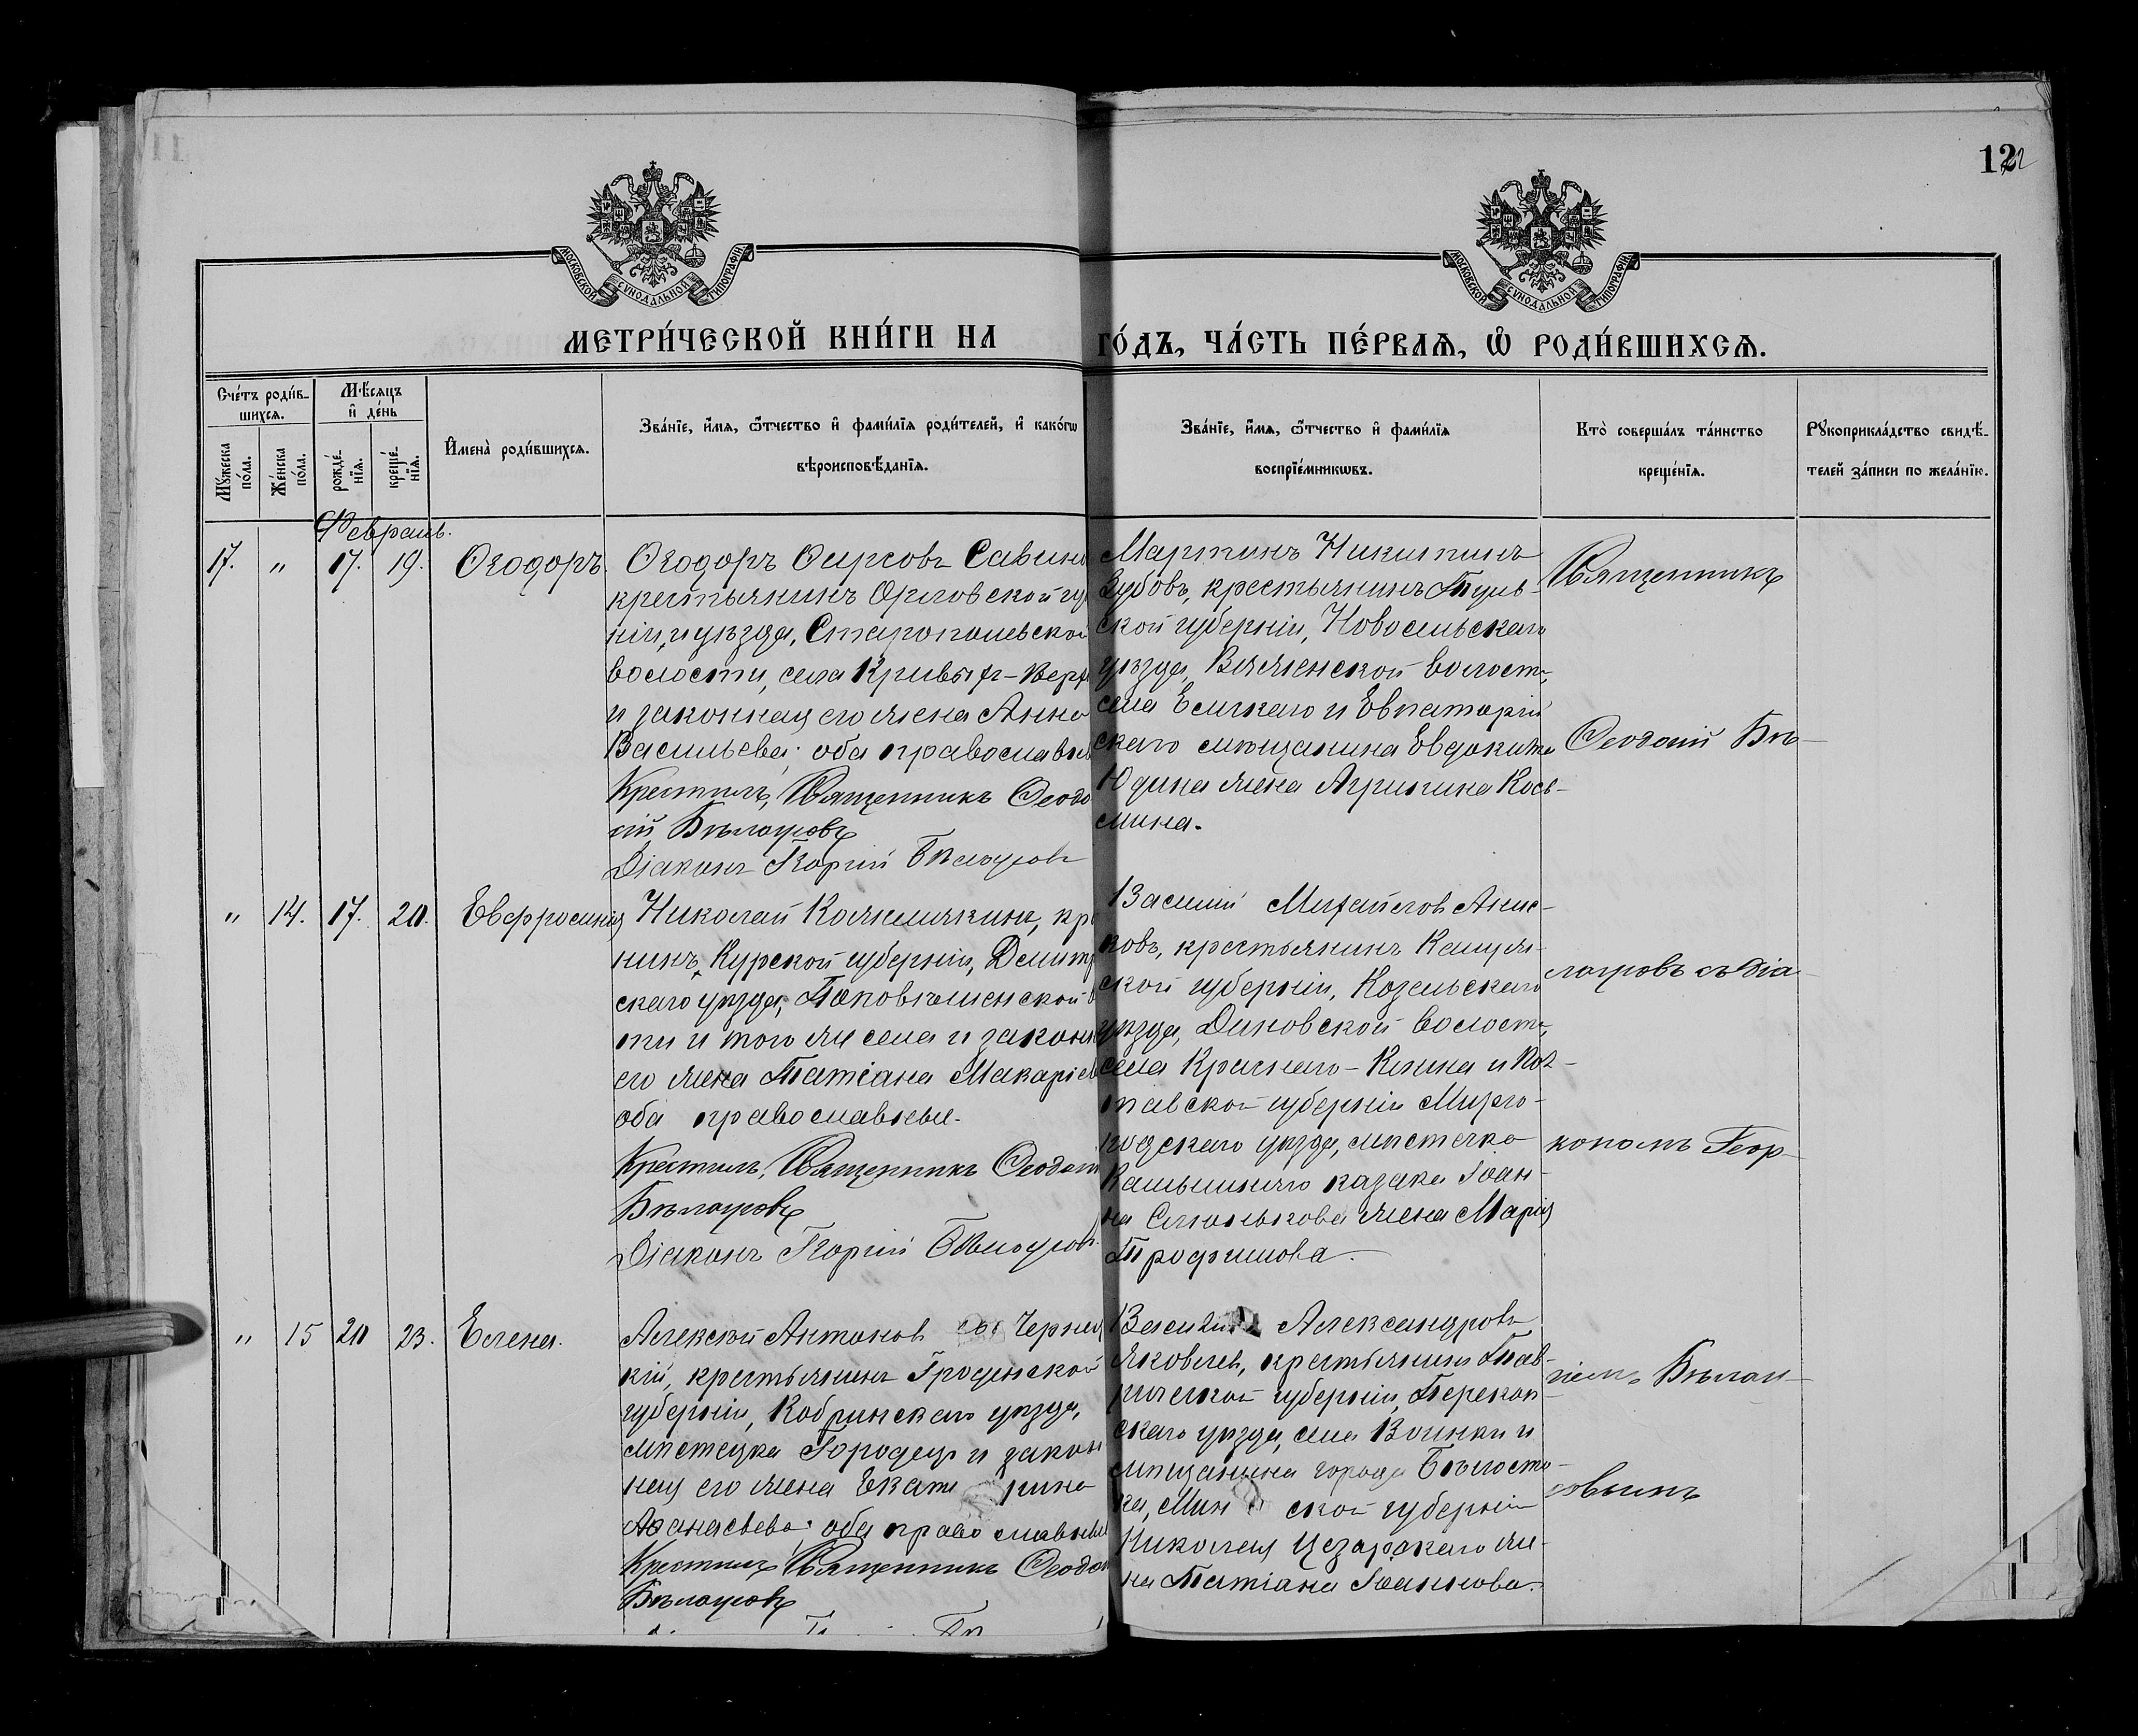 12
МОСКОВСКОЙ СѴНОДАЛЬНОЙ ТИПОГРАФІИ
МОСКОВСКОЙ СѴНОДАЛЬНОЙ ТИПОГРАФІИ
МЕТРИ́ЧЕСКОЙ КНИ́ГИ НА ГО́ДЪ, ЧА́СТЬ ПЕ́РВАѦ, Ѽ РОДИ́ВШИХСѦ.
Сче́тъ роди́в-
шихсѧ.
Мꙋ́жеска по́ла.
Же́нска по́ла.
Мѣ́сѧцъ
и҆ де́нь
рожде́-
нїѧ.
креще́-
нїѧ.
И҆мена̀ роди́вшихсѧ.
Зва́нїе, и҆́мѧ, ѻ҆́тчество и҆ фами́лїѧ роди́телей, и҆ како́гѡ
вѣроисповѣ́данїѧ.
Зва́нїе, и҆́мѧ, ѻ҆́тчество и҆ фами́лїѧ
воспрїе́мникѡвъ.
Кто̀ соверша́лъ та́инство
креще́нїѧ.
Рꙋкоприкла́дство свидѣ́-
телей за́писи по жела́нїю.
Февраль.
17. " 17. 19. Ѳеодоръ.
Ѳеодоръ Ѳирсовъ Савин
крестьянинъ Орловской гу
ніи, и уѣзда,
волости, села Кривыхъ-Верх
и законная его жена Анна
Васильева; оба православн
Крестилъ, Священникъ Ѳеодо
сій Бѣлоусовъ
Діаконъ Георгій Бѣлоусовъ
Мартинъ Никитинъ
Зубовъ, крестьянинъ Туль-
ской губерніи, Новосильскаго
уѣзда, волости,
села и Евпаторій
скаго мѣщанина Евдокима
Юдина жена Агрипина Кось-
мина.
Священникъ
Ѳеодосій Бѣ-
" 14. 17. 20. Евфросинія
Николай кре
нинъ, Курской губерніи, Дмитр
скаго уѣзда, в
сти и того же села и законн
его жена Татіана Макаріев
оба православные.
Крестилъ, Священникъ Ѳеодосій
Бѣлоусовъ
Діаконъ Георгій Бѣлоусовъ
Василій Михайловъ Анис-
ковъ, крестьянинъ Калуж-
ской губерніи, Козельскаго
уѣзда, волости,
села Краснаго-Клина и Пол-
тавской губерніи Мирго-
родскаго уѣзда, мѣстечка
казака Іоан-
на жена Марія
Трофимова.
лоусовъ съ діа-
кономъ Геор-
" 15 20 23. Елена.
Алексѣй Антоновъ
кій, крестьянинъ Гродненской
губерніи, Кобринскаго уѣзда,
мѣстечка Городецъ и закон
ная его жена Екатерина
Аѳанасьева; оба православные
Крестилъ, Священникъ Ѳеодосій
Бѣлоусовъ
Василій Александровъ
Яковлевъ, крестьянинъ Тав-
рической губерніи, Перекоп
скаго уѣзда, села Воинки и
мѣщанина города Бѣлосто-
ка, ской губерніи
Николая же-
на Татіана Іоаннова.
гіемъ Бѣлоу-
совымъ